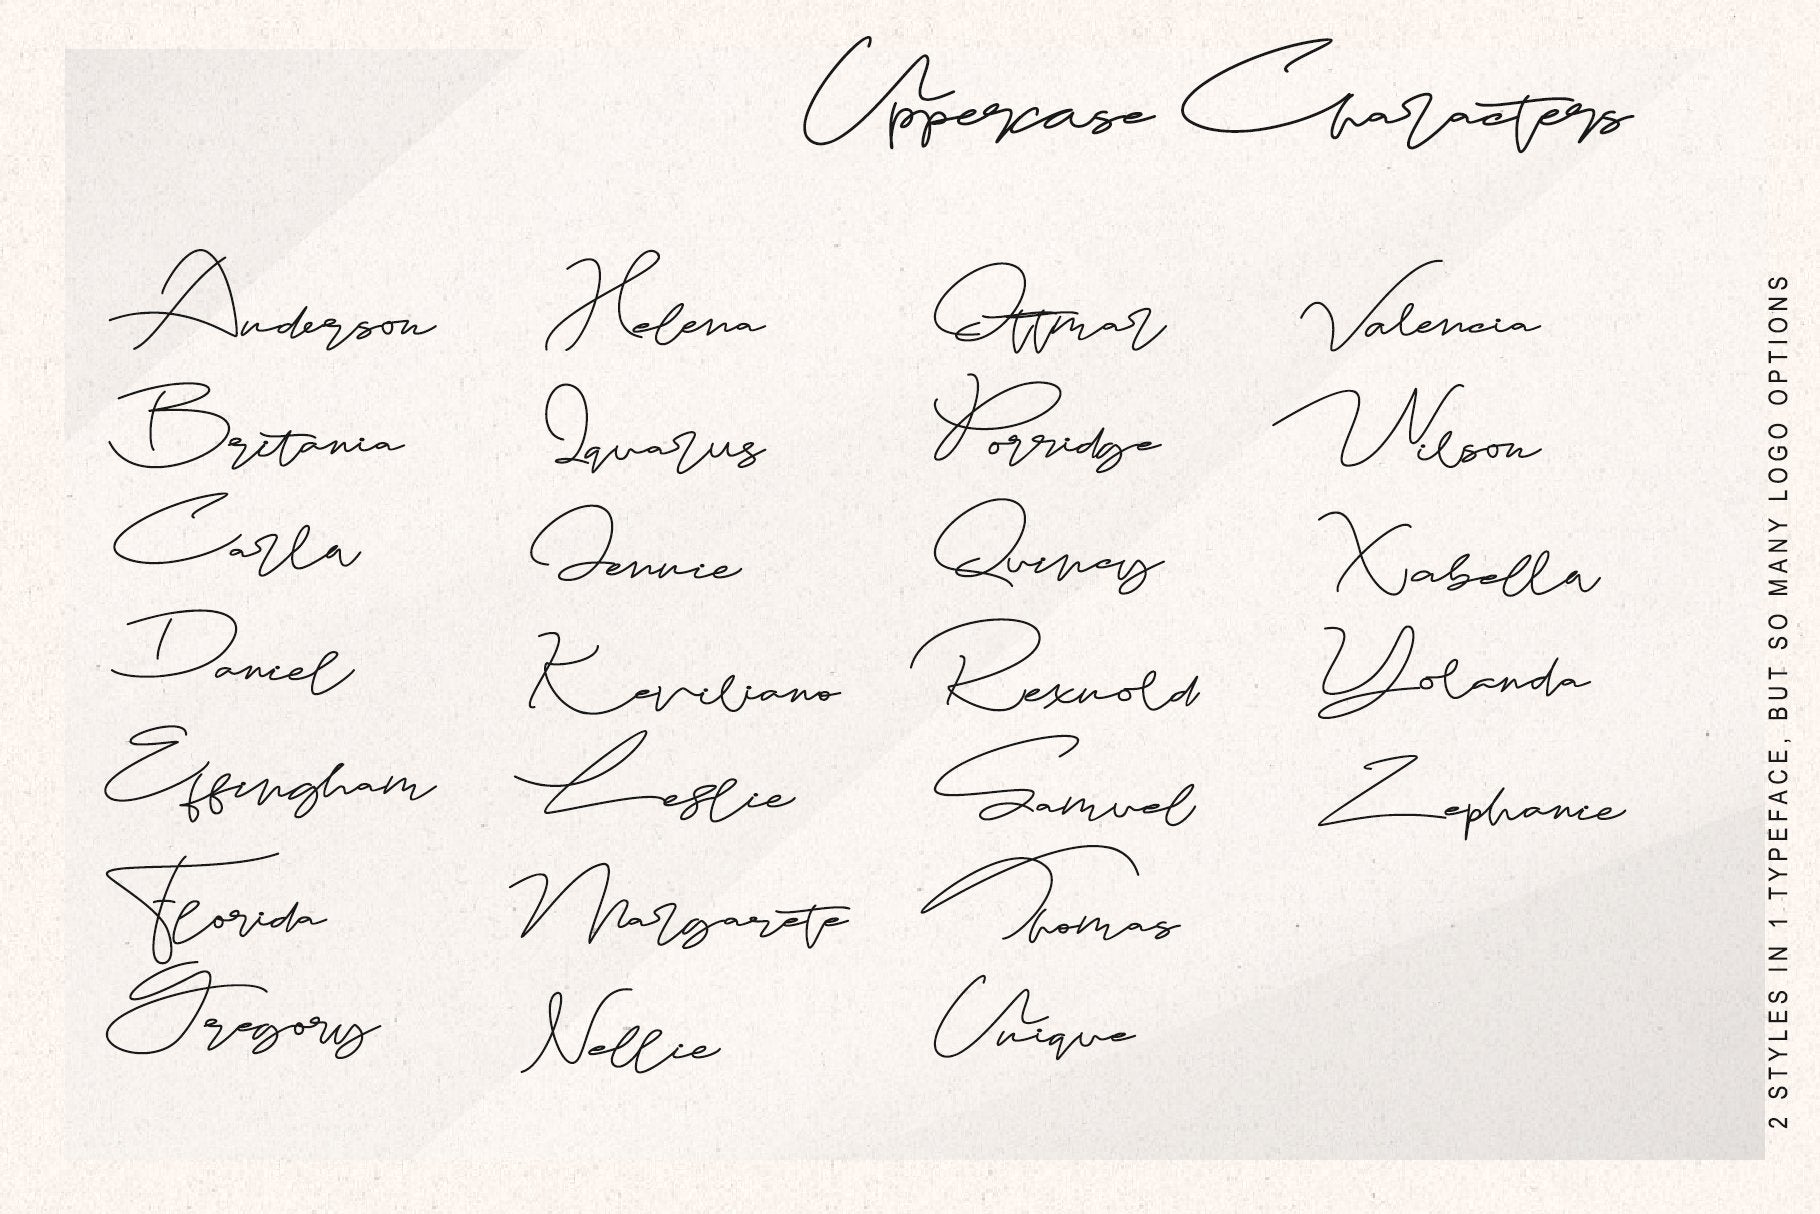 Uppercase Characters
Anderson
Britania
Carla
Daniel
Effingham
Florida
Gregory
Helena
Iquarus
Jennie
Keviliano
Leslie
Margarete
Nellie
Ottmar
Porridge
Quincy
Rexnold
Samuel
Thomas
Unique
Valencia
Wilson
Xabella
Yolanda
Zephanie
2 STYLES IN 1 TYPEFACE, BUT SO MANY LOGO OPTIONS